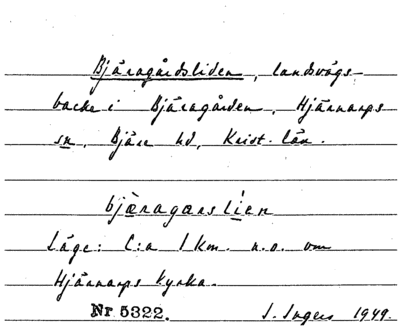 Bjäragårdsliden, landsvägs-
backe i Bjäragården, Hjärnarps
sn, Bjäre hd, Krist. län.
bjæragarslien
Läge: C:a 1 km. n.o. om
Hjärnarps kyrka.
Nr 5322. I. Ingers 1949.